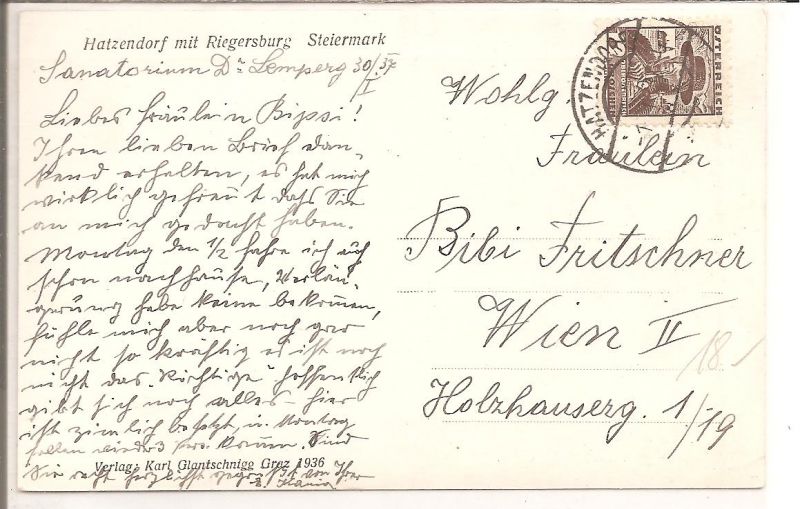 Hatzendorf mit Riegersburg Steiermark
Sanatorium Dr Lemperg 30/I 37
Liebes Fräulein Bipsi!
Ihren lieben Brief dan-
kend erhalten, es hat mich
wirklich gefreut dass Sie
an mich gedacht haben.
Montag den 1/2 fahre ich auch
schon nachhause, Verlän-
gerung habe keine bekommen,
fühle mich aber noch gar
nicht so kräftig es ist noch
nicht das "Richtige" hoffentlich
gibt sich noch alles – hier
ist ziemlich besetzt, u. Montag
sollen wieder 3 kommen. Sind
Sie recht herzlichst gegrüßt von Ihrer
Verlag: Karl Glantschnigg Graz 1936
HATZENDORF
ÖSTERREICH
Wohlg.
Fräulein
Bibi Fritschner
Wien II
18.-
Holzhauserg. 1/19